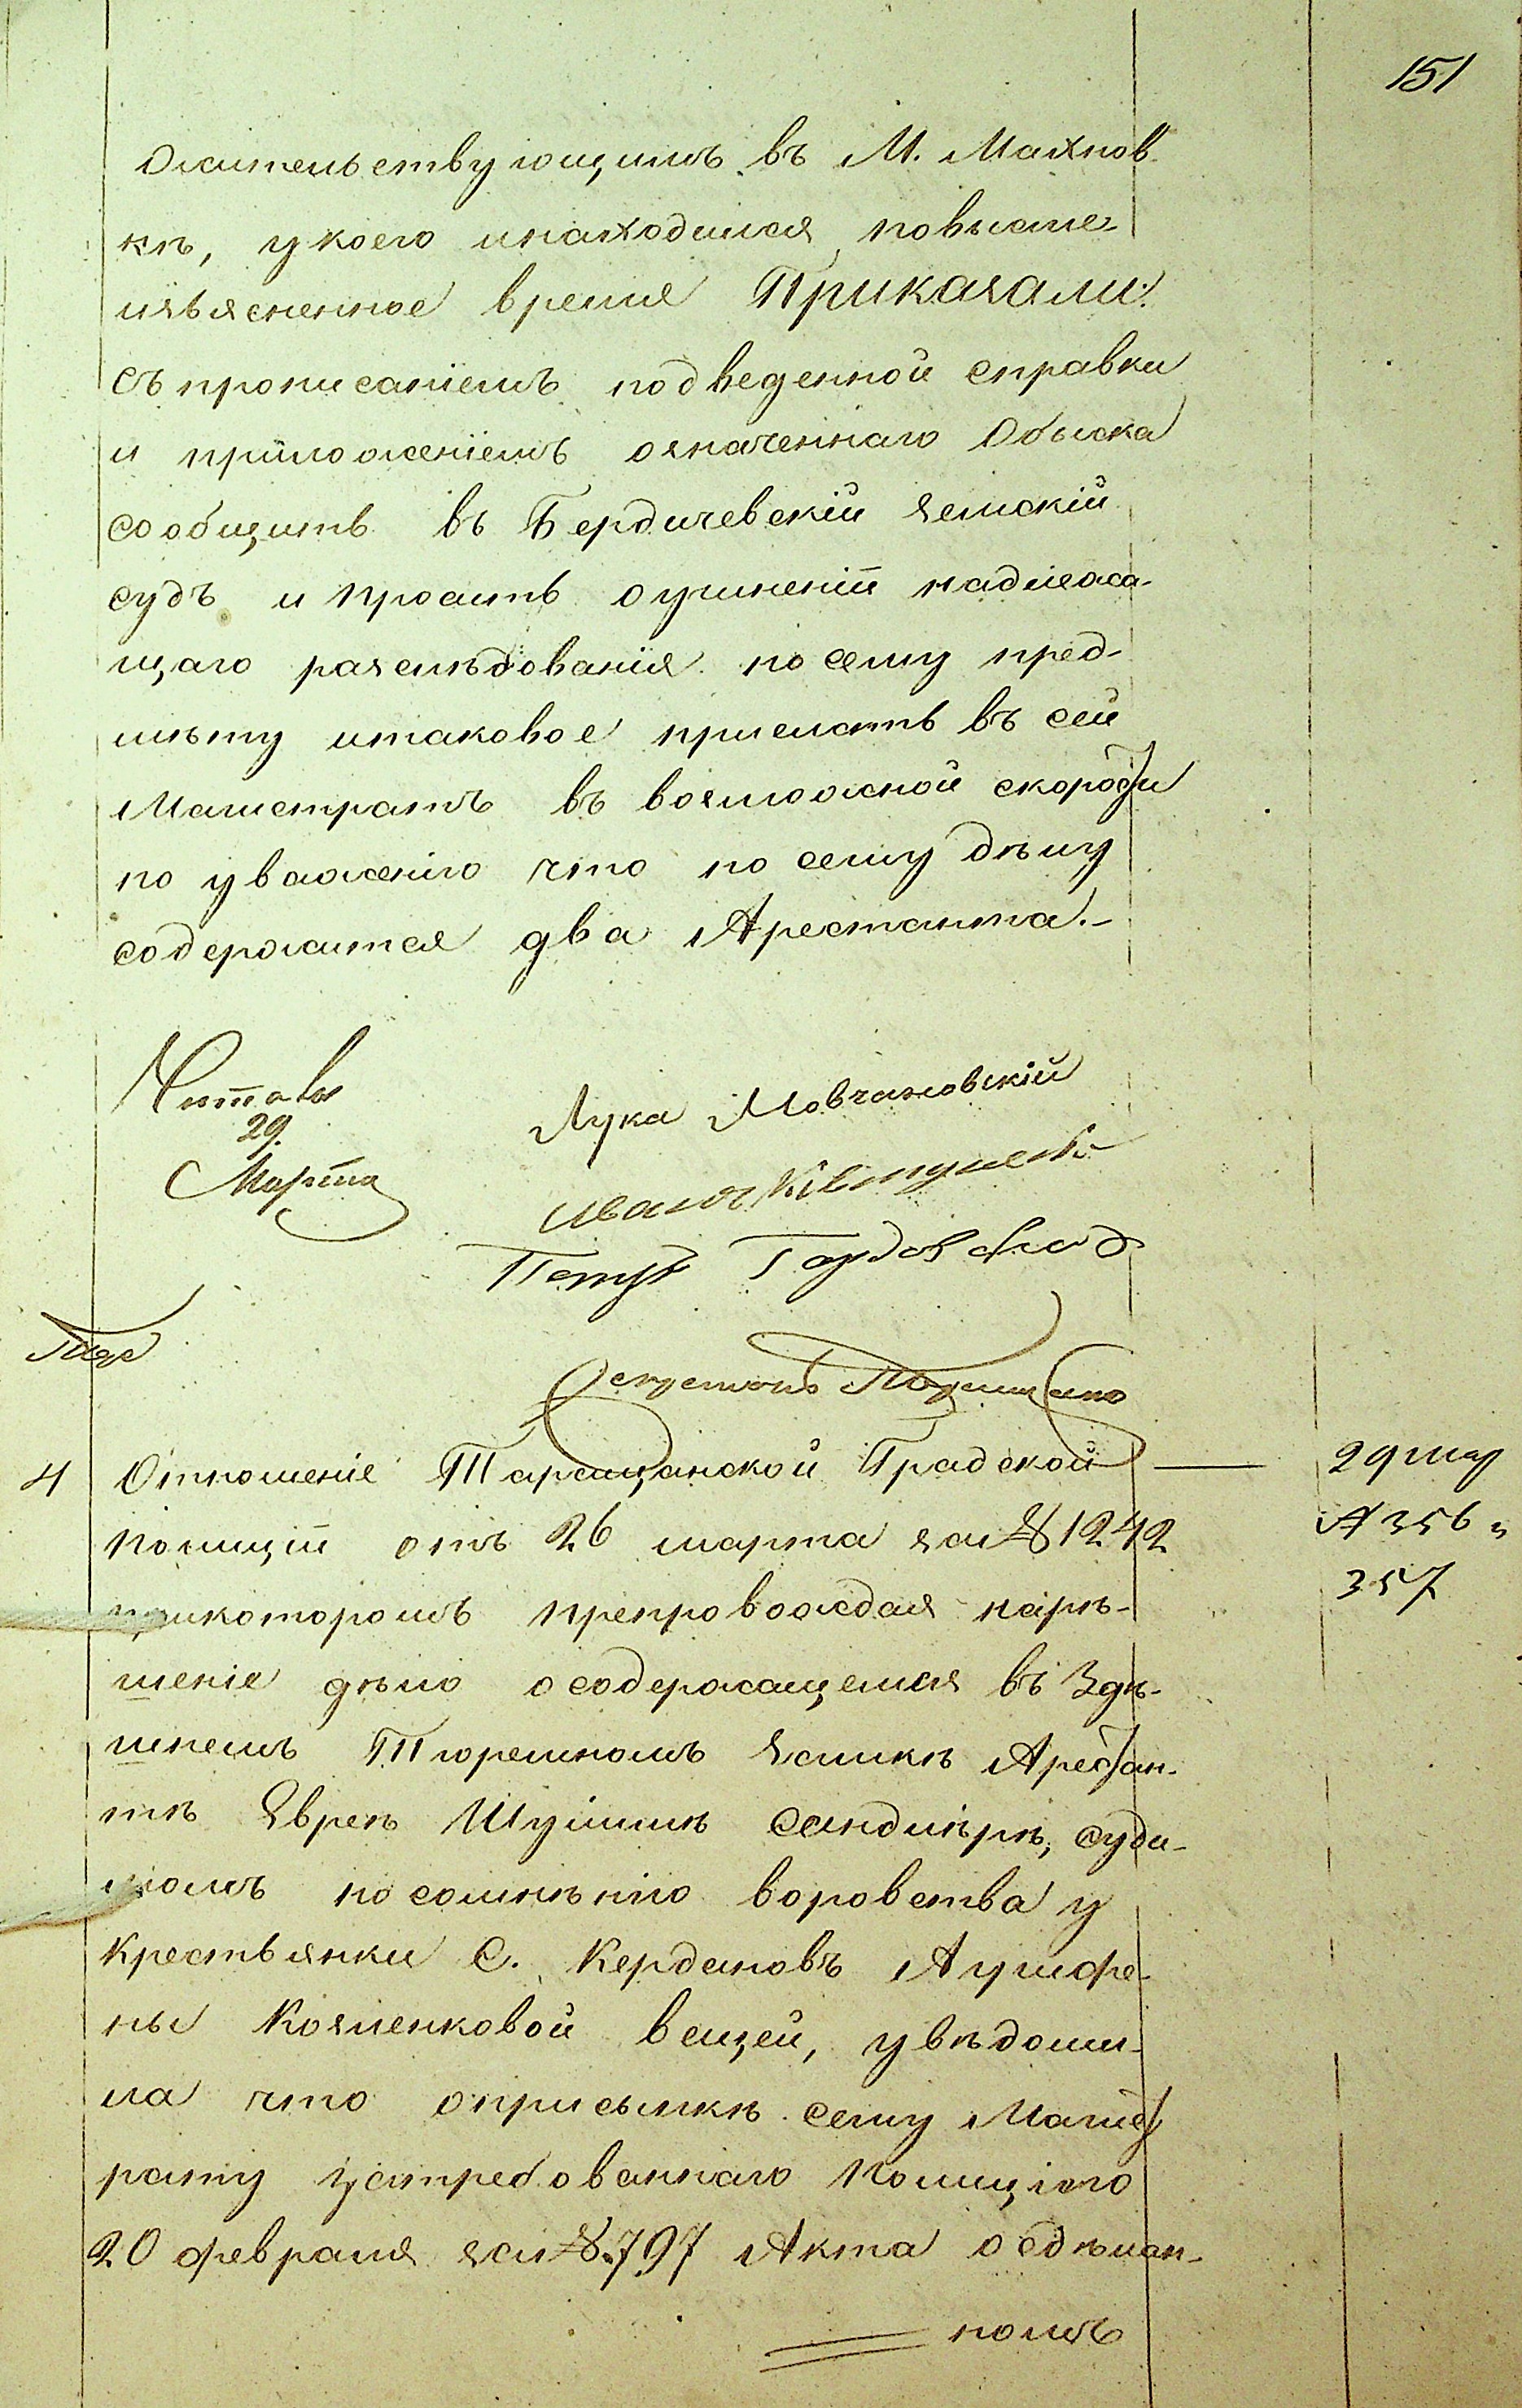 151
жительствующимъ въ М. Махнов-
кѣ, у коего инаходился повыше
изъясненное время Приказали:
съ прописаніемъ подведенной справки
и приложеніемъ означеннаго Обыска
сообщить въ Бердичевскій земскій
судъ и просить оучиненіи надлежа-
щаго разслѣдованія по сему пред-
мѣту итаковое прислать въ сей
Магистратъ въ возможной скорости
по уваженію что по сему дѣлу
содержится два Арестанта.-
Читалъ
29.
Марта
Лука Мовчановскій
Иванъ
Петръ
4 Отношеніе Таращанской Градской
29 мар
Полиціи отъ 26 марта за № 1242
№ 356 и
прикоторомъ препровождая нарѣ-
357
шеніе дѣло осодержащемся въ Здѣ-
шнемъ Тюремномъ Замкѣ Арестан-
тѣ Евреѣ Шулимѣ Сандлѣрѣ, суди-
момъ посомнѣнію воровства у
крестьянки С. Кердановъ Агрифе-
ны Козленковой вещей, увѣдоми-
ла что оприсылкѣ сему Магист
рату истребованнаго Полиціею
20 февраля за № 797 Акта осдѣлан-
номъ